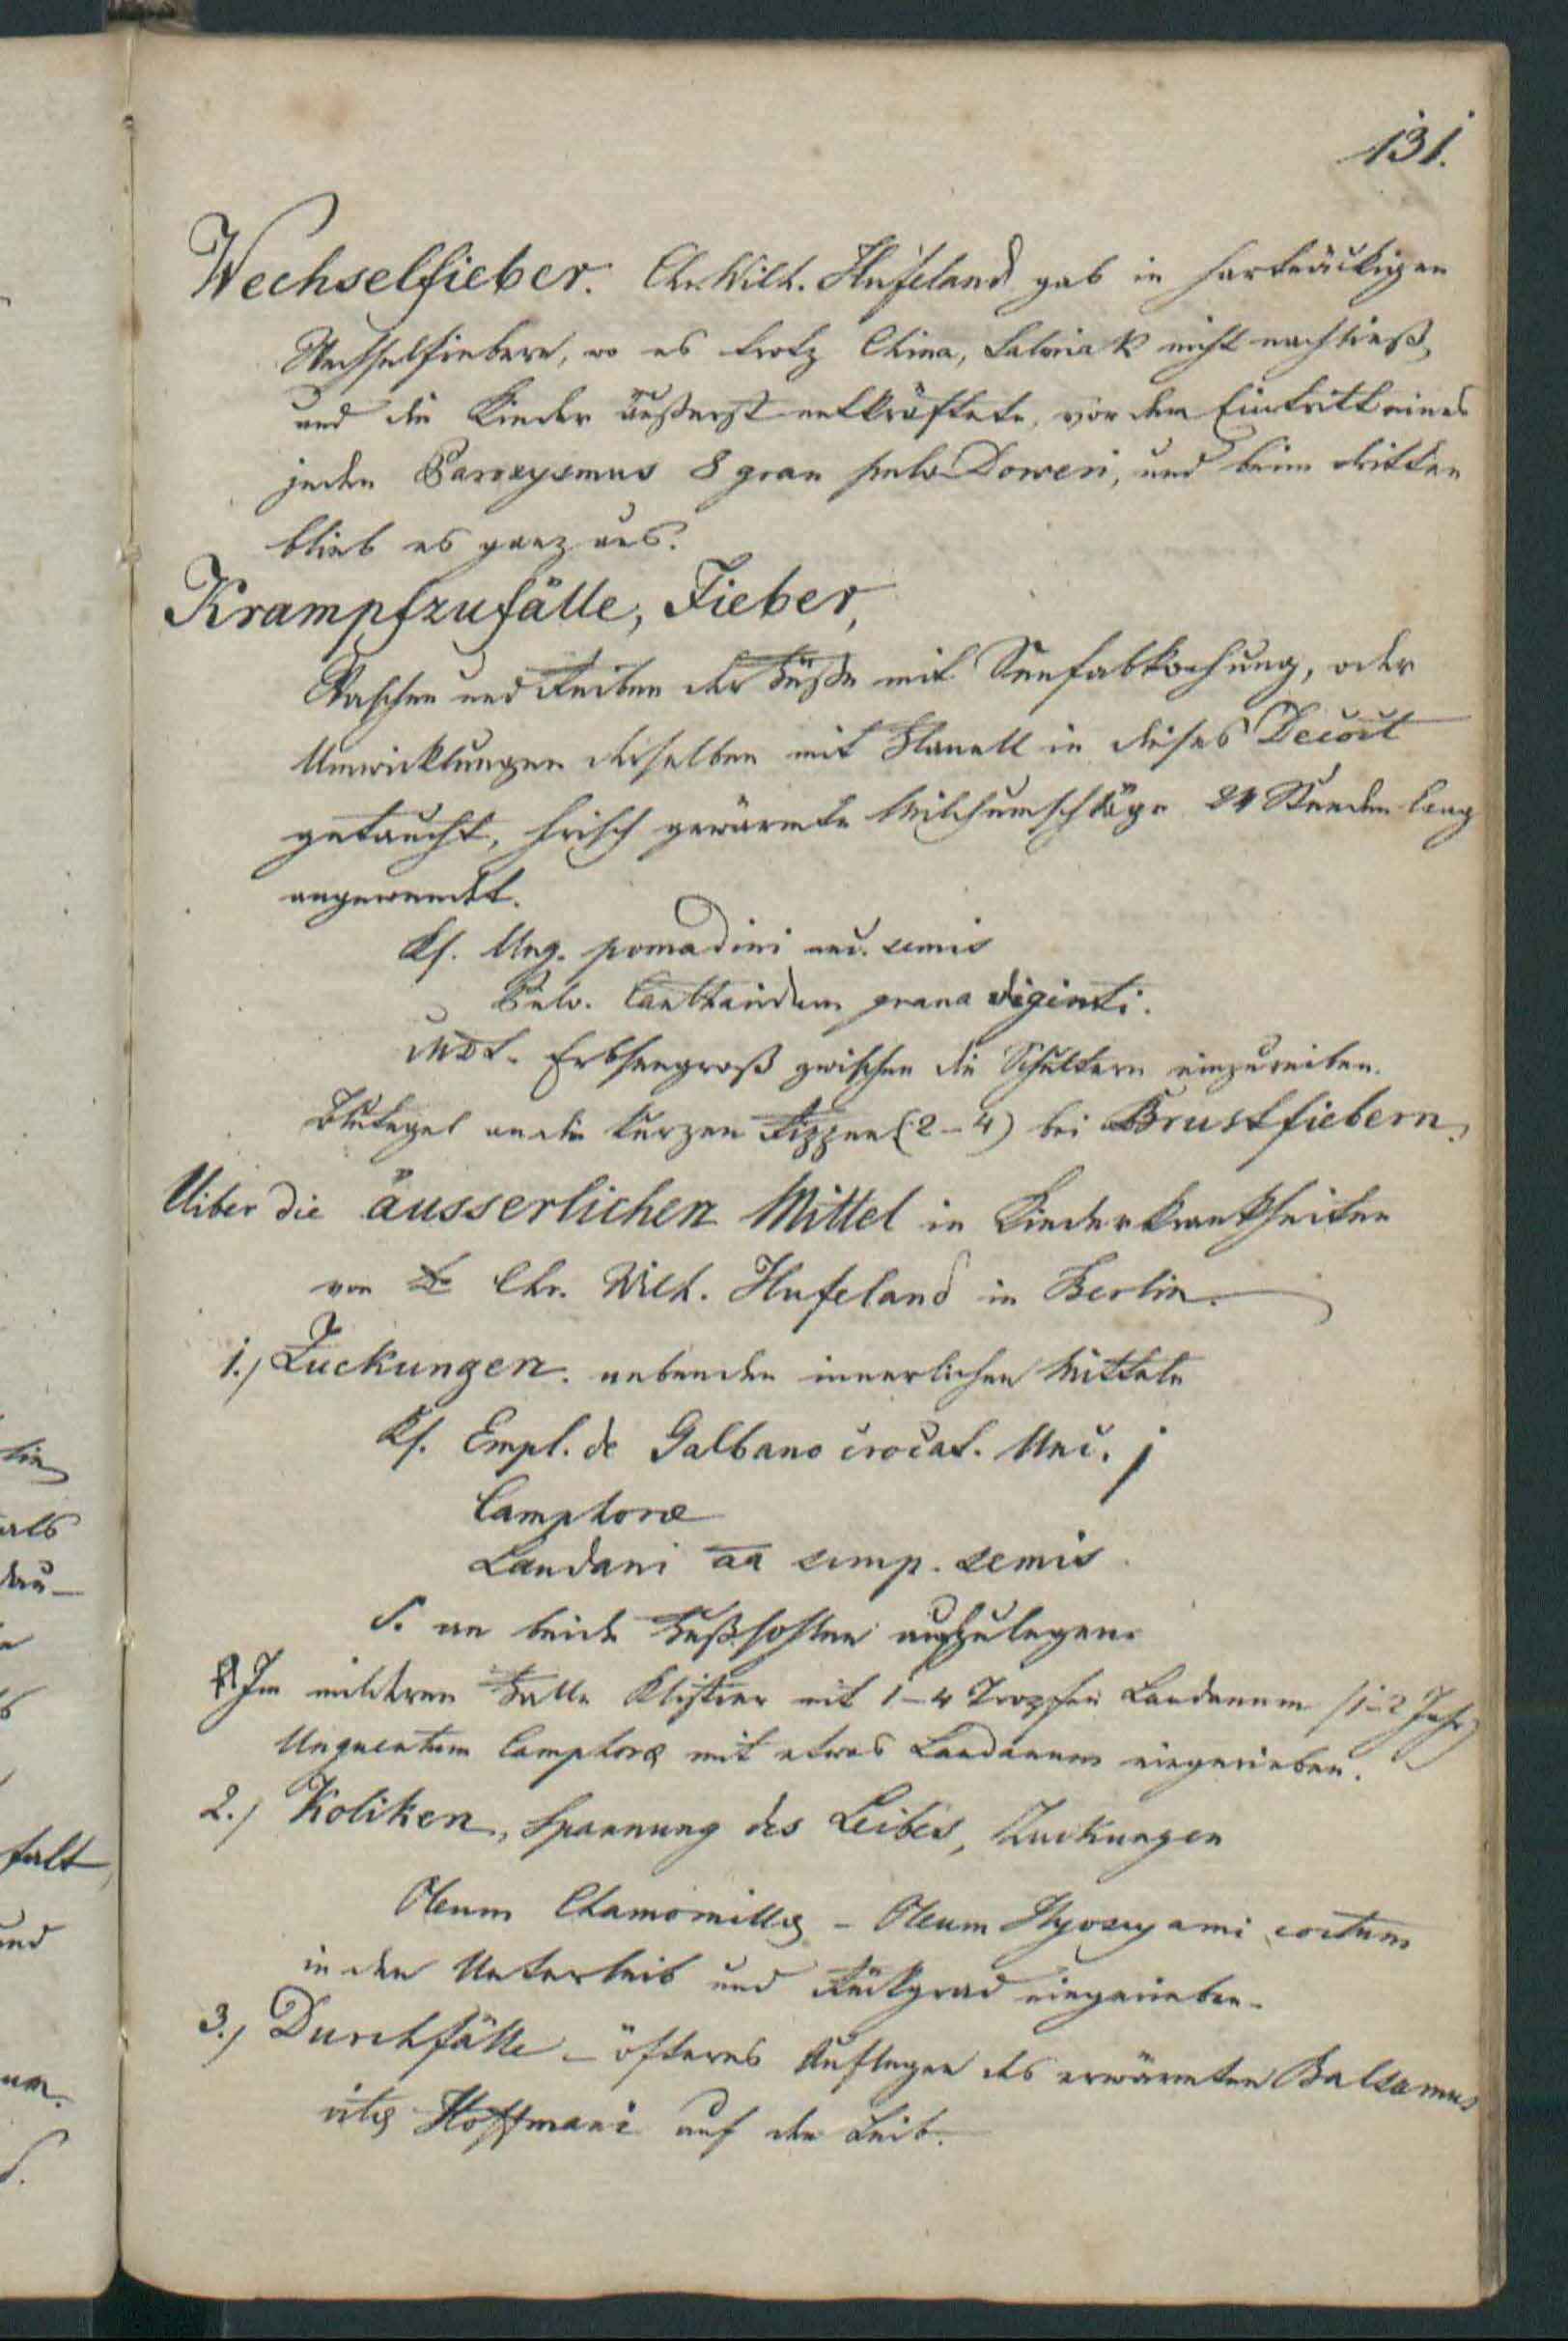 131.
Wechselfieber. Chr. Wilh. Hufeland gab in hartnäckigen
Wechselfiebern, wo es trotz China, Salmiak nicht nachließ,
und die Kinder äußerst entkräftete, vor dem Eintritt eines
jeden Paroxysmus 8 gran pulv Doweri, und beim dritten
blieb es ganz aus.
Krampfzufälle, Fieber,
Waschen und Reiben der Füße mit Senfabkochung, oder
Umwicklungen derselben mit Flanell in dieses Decoct
getaucht, frisch gewärmte Milchumschläge 24 Stunden lang
angewendet.
Rf. Ung. pomadini unc. semis
Pulv. Cantharidum grana viginti.
MDS. Erbsengroß zwischen die Schultern einzureiben.
Blutegel an die kurzen Rippen (2-4) bei Brustfiebern.
Uiber die äusserlichen Mittel in Kinderkrankheiten
von Dr Chr. Wilh. Hufeland in Berlin.
1.) Zuckungen. neben den innerlichen Mitteln
Rf. Empl. de Galbano crocat. Unc. j
Camphoræ
Laudani aa scrup. semis
S. an beide Fußsohlen aufzulegen.
Im milderen Falle Klistier mit 1-4 Tropfen Laudanum (1-2 Jahr)
Unguentum Camphoræ mit etwas Laudanum eingerieben.
2.) Koliken, Spannung des Leibes, Zuckungen
Oleum Chamomillæ - Oleum Hyoscyami coctum
in den Unterleib und Rückgrad eingerieben.
3.) Durchfälle - öfteres Auflegen des erwärmten Balsamus
vitæ Hoffmani auf den Leib.